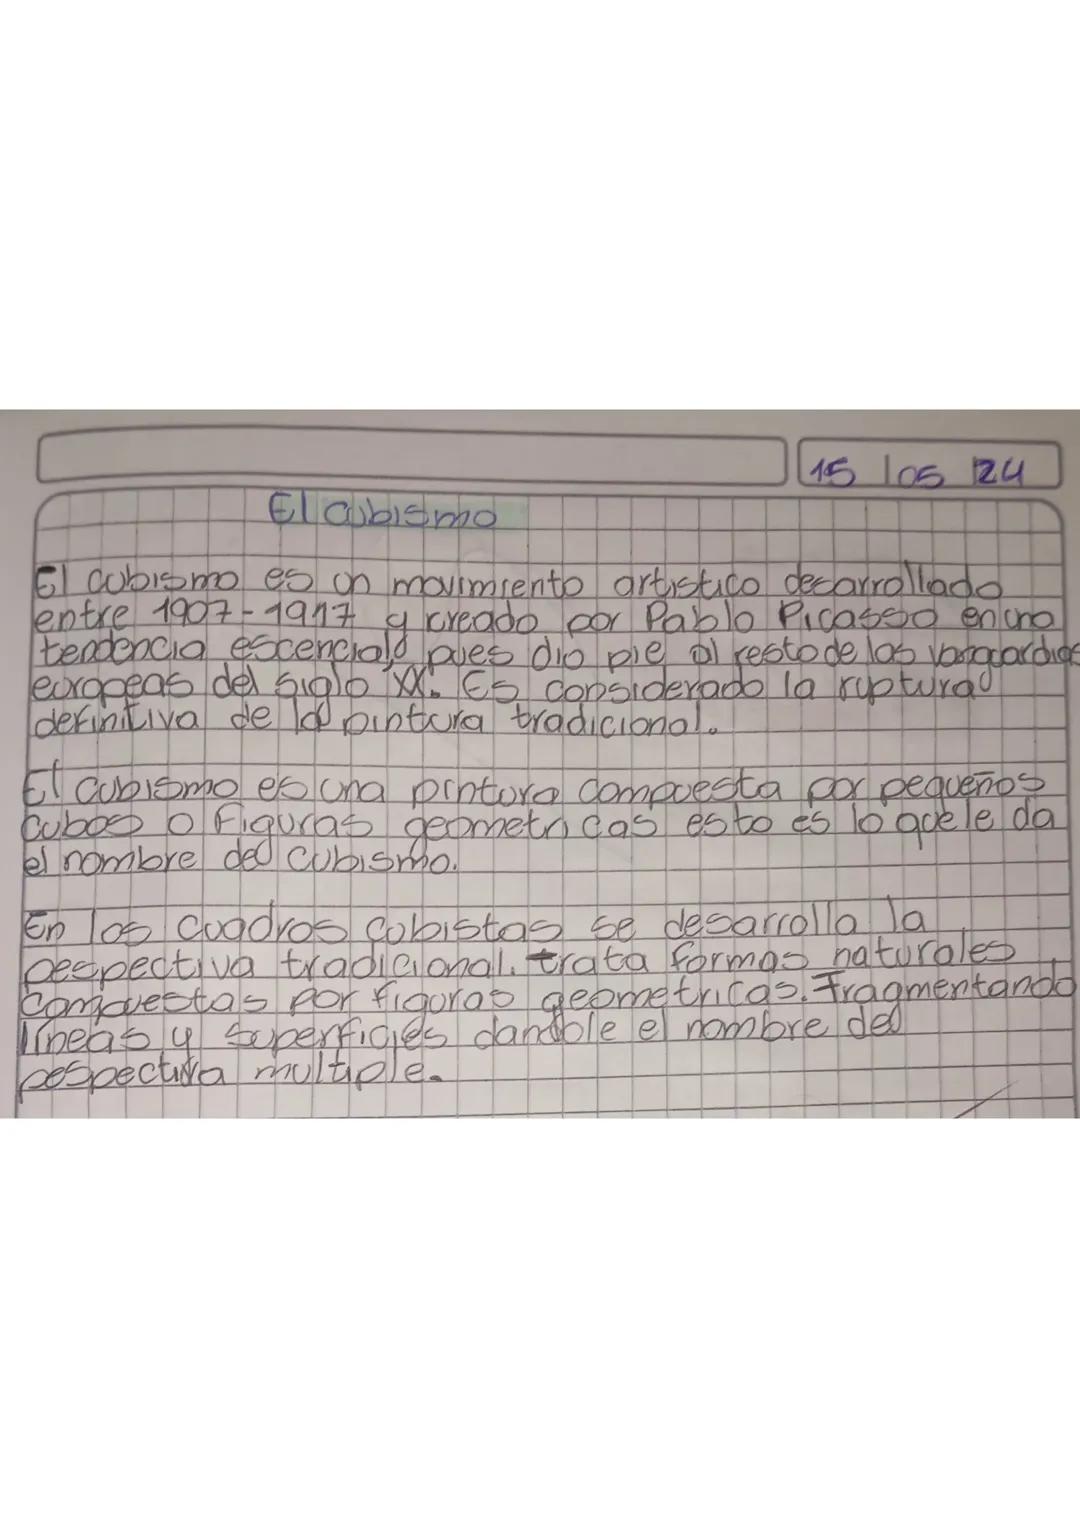 15 /05 /24
El cubismo
El cubismo es un movimiento artistico decarrollado
entre 1907-1917 y creado por Pablo Picasso en una
tendencia escencial, pues dio pie al resto de las vanguardias
europeas del siglo XX. Es considerado la ruptura
definitiva de la pintura tradicional.
El cubismo es una pintura compuesta por pequeños
cubos o figuras geometricas esto es lo que le da
el nombre del cubismo.
En los cuadros cubistas se desarrolla la
pespectiva tradicional. trata formas naturales
compuestas por figuras geometricas. Fragmentando
líneas y superficies dandole el nombre de
pespectiva multiple.